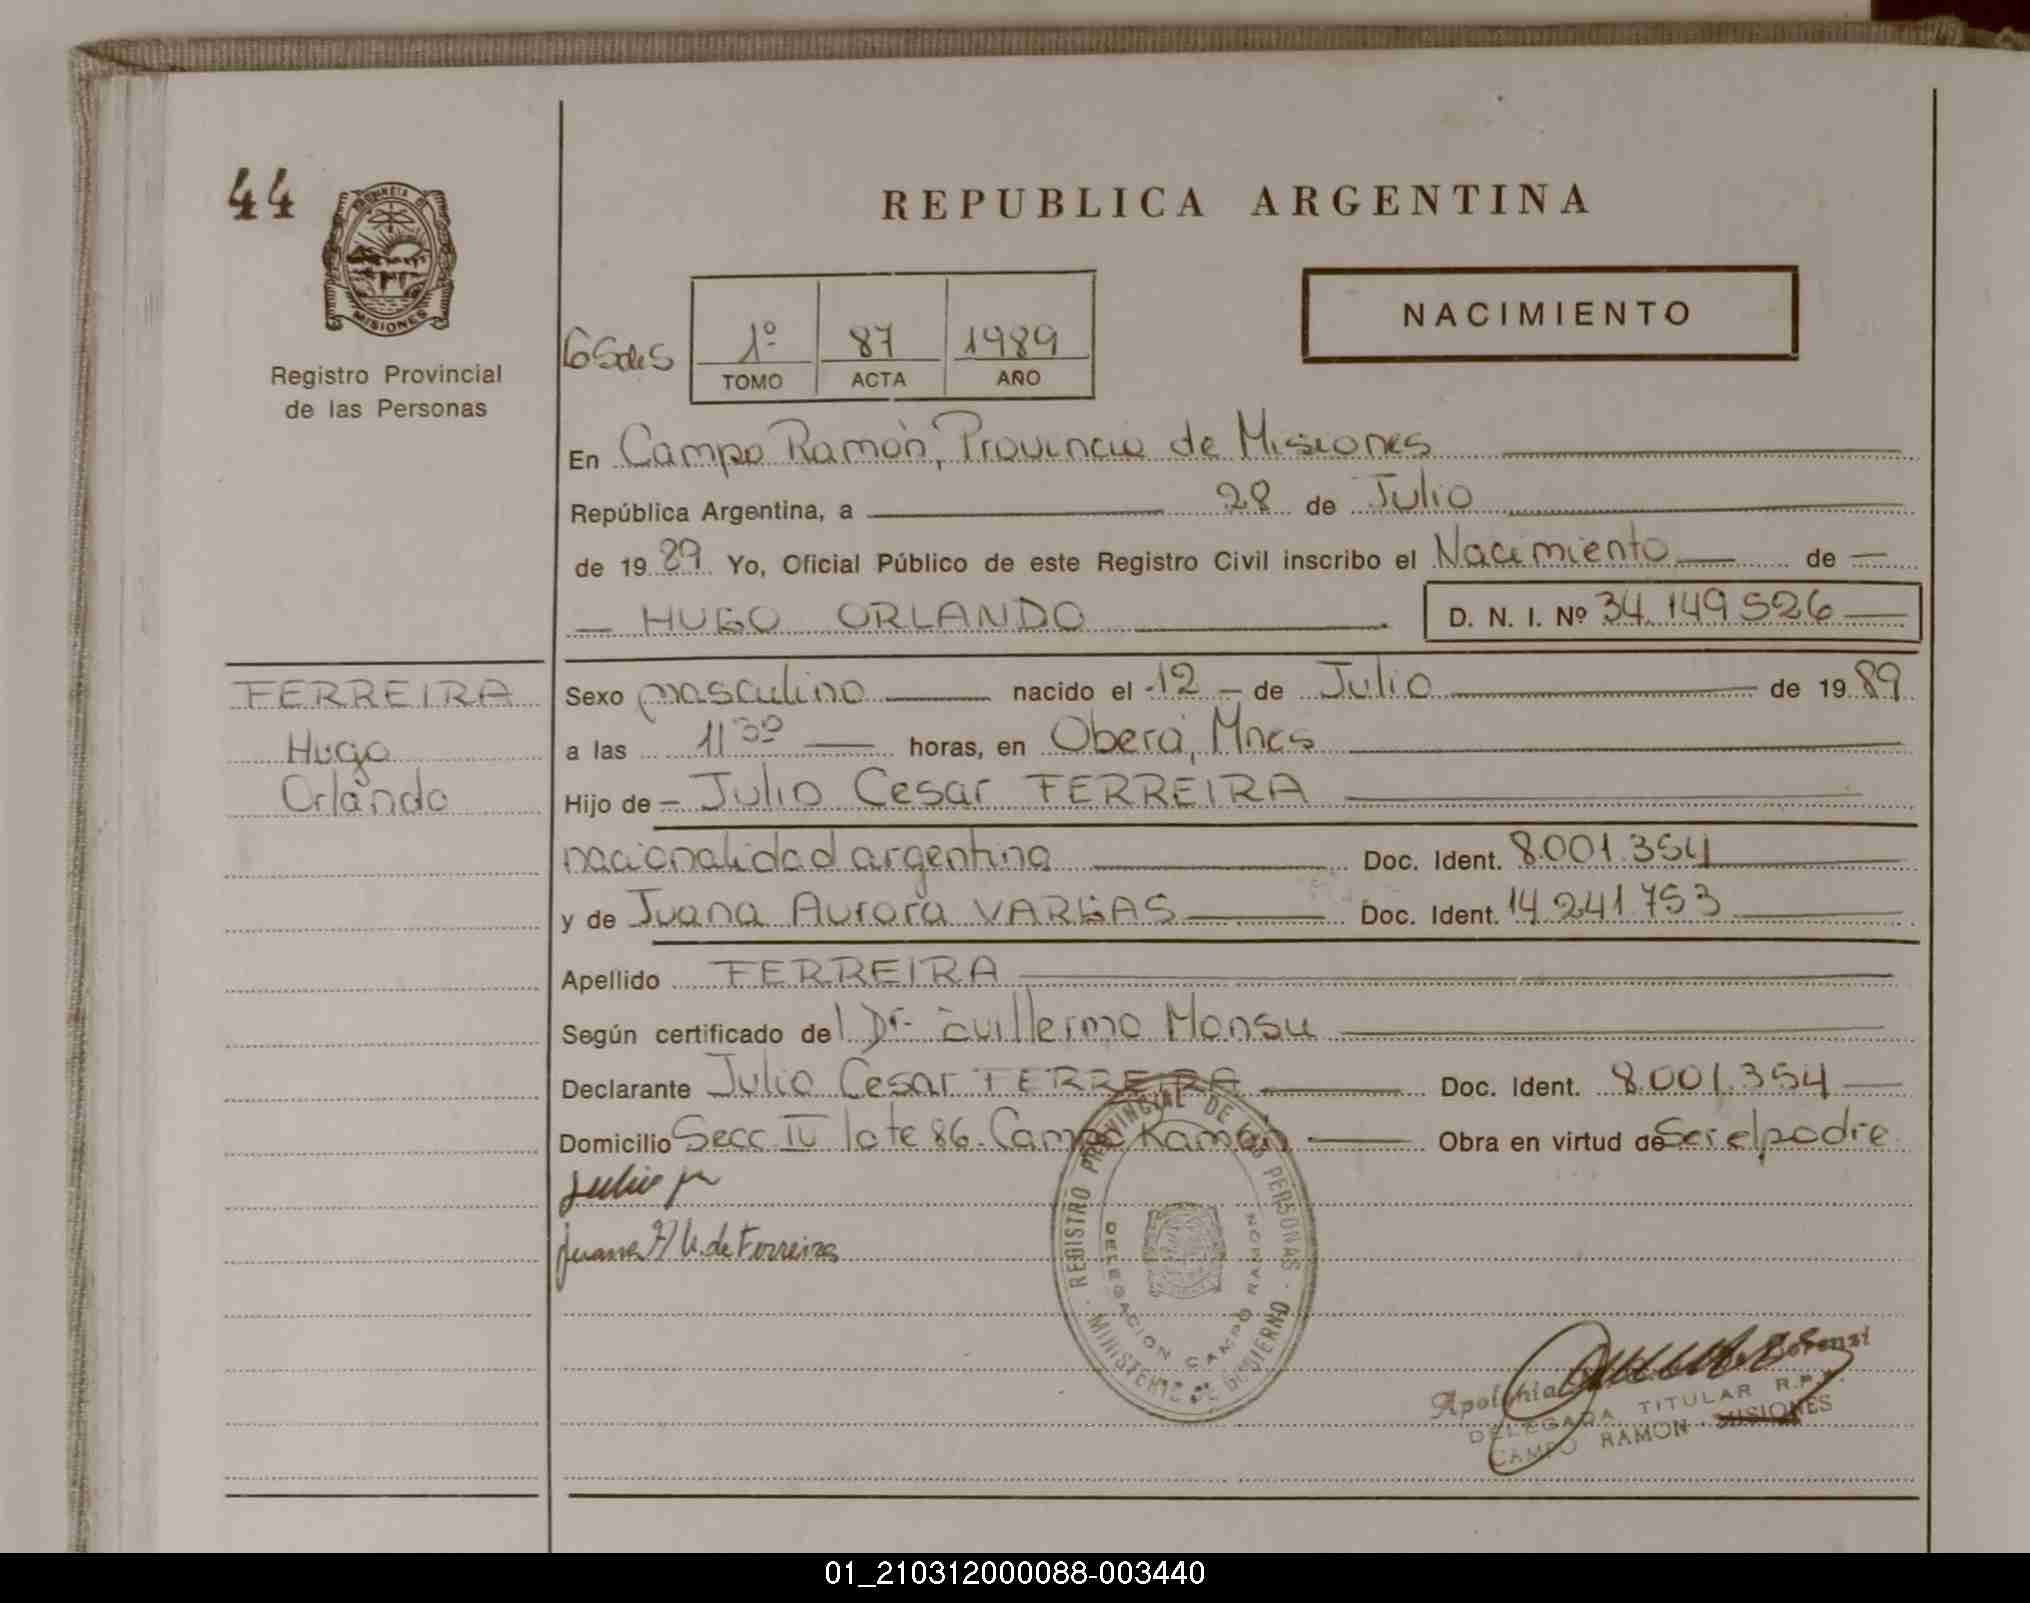 44
MISIONES
Registro Provincial
de las Personas
REPUBLICA ARGENTINA
NACIMIENTO
1º 87 1989
TOMO ACTA AÑO
En Campo Ramón, Provincia de Misiones
República Argentina, a 28 de Julio
de 1989 Yo, Oficial Público de este Registro Civil inscribo el Nacimiento de
HUGO ORLANDO D. N. I. Nº 34.149.526
FERREIRA
Hugo
Orlando
Sexo masculino nacido el 12 de Julio de 1989
a las 11 30 horas, en Oberá, Mnes
Hijo de Julio Cesar FERREIRA
nacionalidad argentina Doc. Ident. 8.001.354
y de Juana Aurora VARGAS Doc. Ident. 14.241.753
Apellido FERREIRA
Según certificado del Dr. Guillermo Monsu
Declarante Julio Cesar FERREIRA Doc. Ident. 8.001.354
Domicilio Secc. IV lote 86. Campo Ramón Obra en virtud de Ser el padre
Juana A V. de Ferreira
REGISTRO PROVINCIAL DE LAS PERSONAS
MINISTERIO DE GOBIERNO
DELEGACION CAMPO RAMON
DELEGADA TITULAR R.P.P.
CAMPO RAMON - MISIONES
01_210312000088-003440